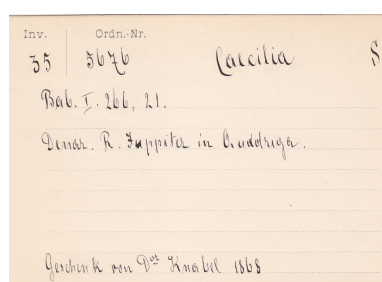 Inv. Ordn.-Nr.
35 3676 Caecilia S
Bab. I. 266, 21.
Denar. R. Juppiter in Quadriga.
Geschenk von Dor Knabel 1868